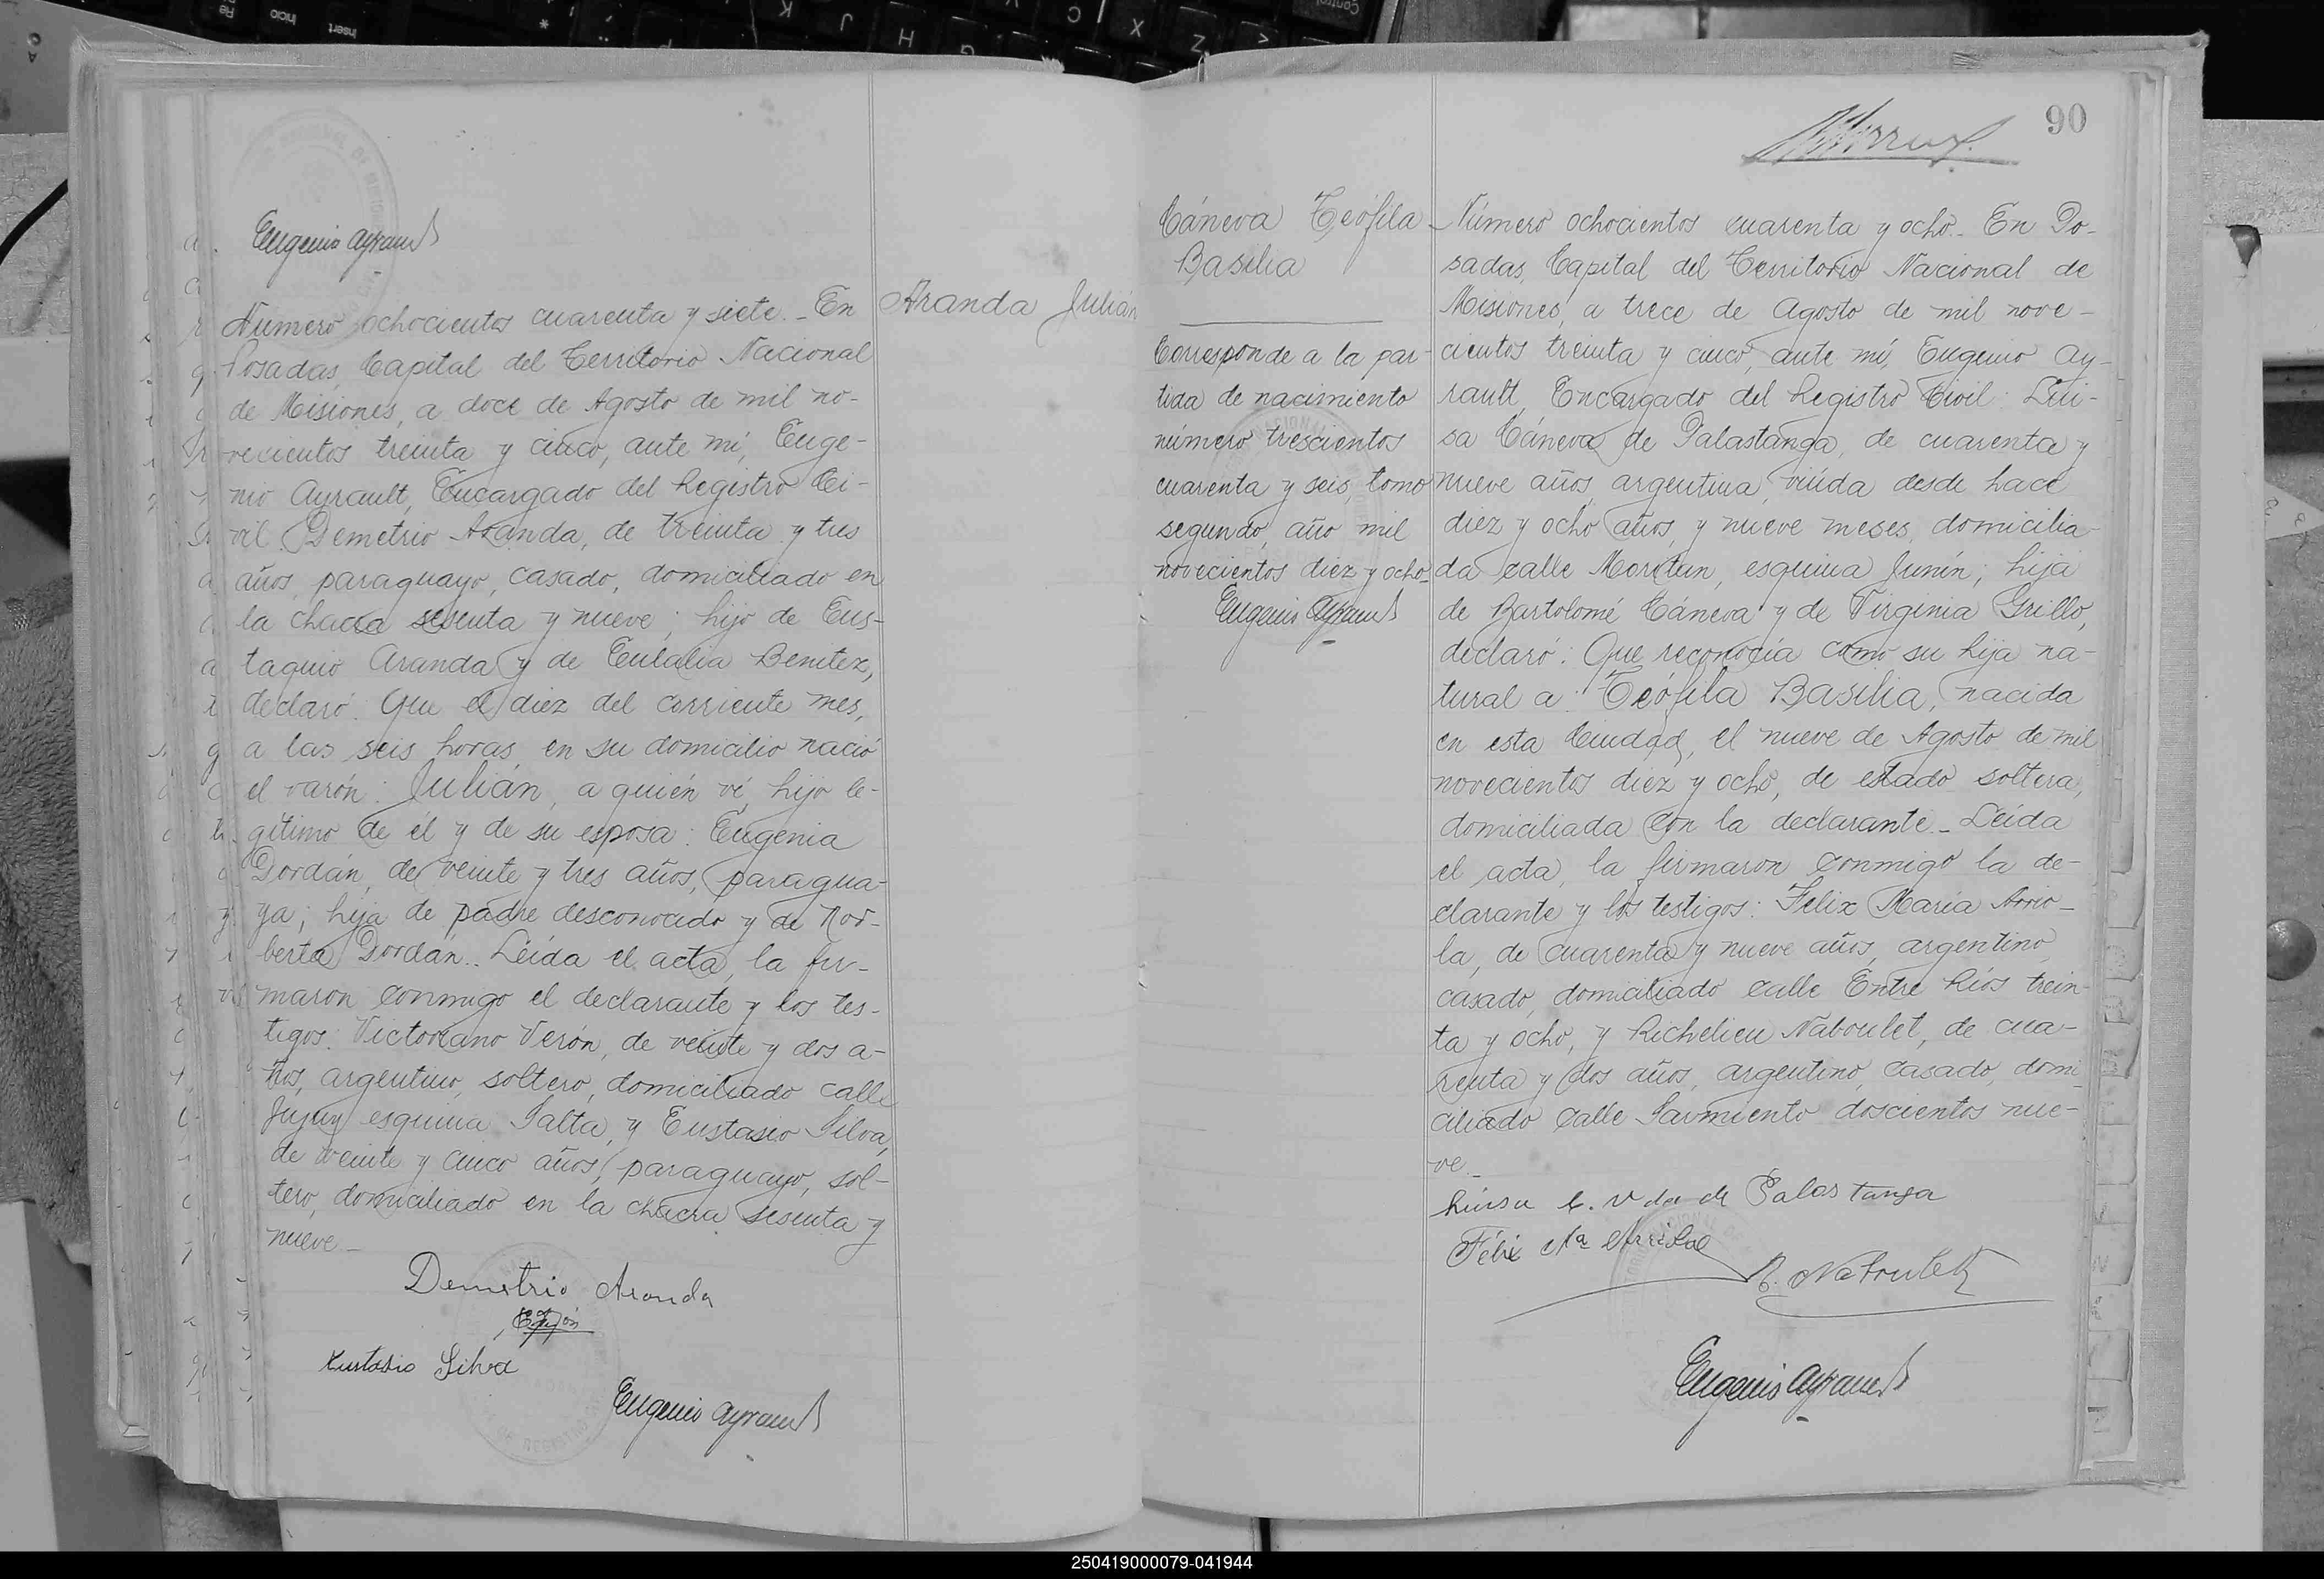 Eugenio Ayrault
Número ochocientos cuarenta y siete.- En
Posadas, Capital del Territorio Nacional
de Misiones, a doce de Agosto de mil no-
vecientos treinta y cinco, ante mí, Euge-
nio Ayrault, Encargado del Registro Ci-
vil: Demetrio Aranda, de treinta y tres
años, paraguayo, casado, domiciliado en
la chacra sesenta y nueve; hijo de Eus-
taquio Aranda y de Eulalia Benitez,
declaró: Que el diez del corriente mes,
a las seis horas, en su domicilio nació
el varón: Julián, a quién ví, hijo le-
gítimo de él y de su esposa: Eugenia
Dordán, de veinte y tres años, paragua-
ya; hija de padre desconocido y de Nor-
berta Dordán.. Leída el acta, la fir-
maron conmigo el declarante y los tes-
tigos: Victoriano Verón, de veinte y dos a-
ños, argentino, soltero, domiciliado calle
Jujuy esquina Salta, y Eustasio Silva,
de veinte y cinco años, paraguayo, sol-
tero, domiciliado en la chacra sesenta y
nueve-
Demetrio Aranda
Eustasio Silva
Eugenio Ayrault
Aranda Julián
90
Cáneva Teófila
Basilia
Corresponde a la par-
tida de nacimiento
número trescientos
cuarenta y seis, tomo
segundo, año mil
novecientos diez y ocho-
Eugenio Ayrault
Número ochocientos cuarenta y ocho.- En Po-
sadas, Capital del Territorio Nacional de
Misiones, a trece de Agosto de mil nove-
cientos treinta y cinco, ante mí, Eugenio Ay-
rault, Encargado del Registro Civil: Lui-
sa Cáneva de Palastanga, de cuarenta y
nueve años, argentina, viúda desde hace
diez y ocho años, y nueve meses, domicilia-
da calle Moritun, esquina Junín; hija
de Bartolomé Cáneva y de Virginia Grillo,
declaró: Que reconocía como su hija na-
tural a: Teófila Basilia, nacida
en esta Ciudad, el nueve de Agosto de mil
novecientos diez y ocho, de estado soltera,
domiciliada con la declarante.- Leída
el acta, la firmaron conmigo la de-
clarante y los testigos: Felix María Arrio-
la, de cuarenta y nueve años, argentino,
casado, domiciliado calle Entre Ríos trein-
ta y ocho, y Richelieu Naboulet, de cua-
renta y dos años, argentino, casado, domi-
ciliado calle Sarmiento doscientos nue-
ve.-
Luisa C. vda de Palastanga
Félix Ma Arriola
R. Naboulet
Eugenio Ayrault
250419000079-041944